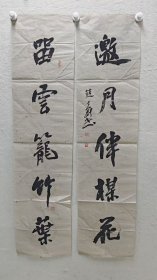 邀月伴梅花
留雲籠竹葉